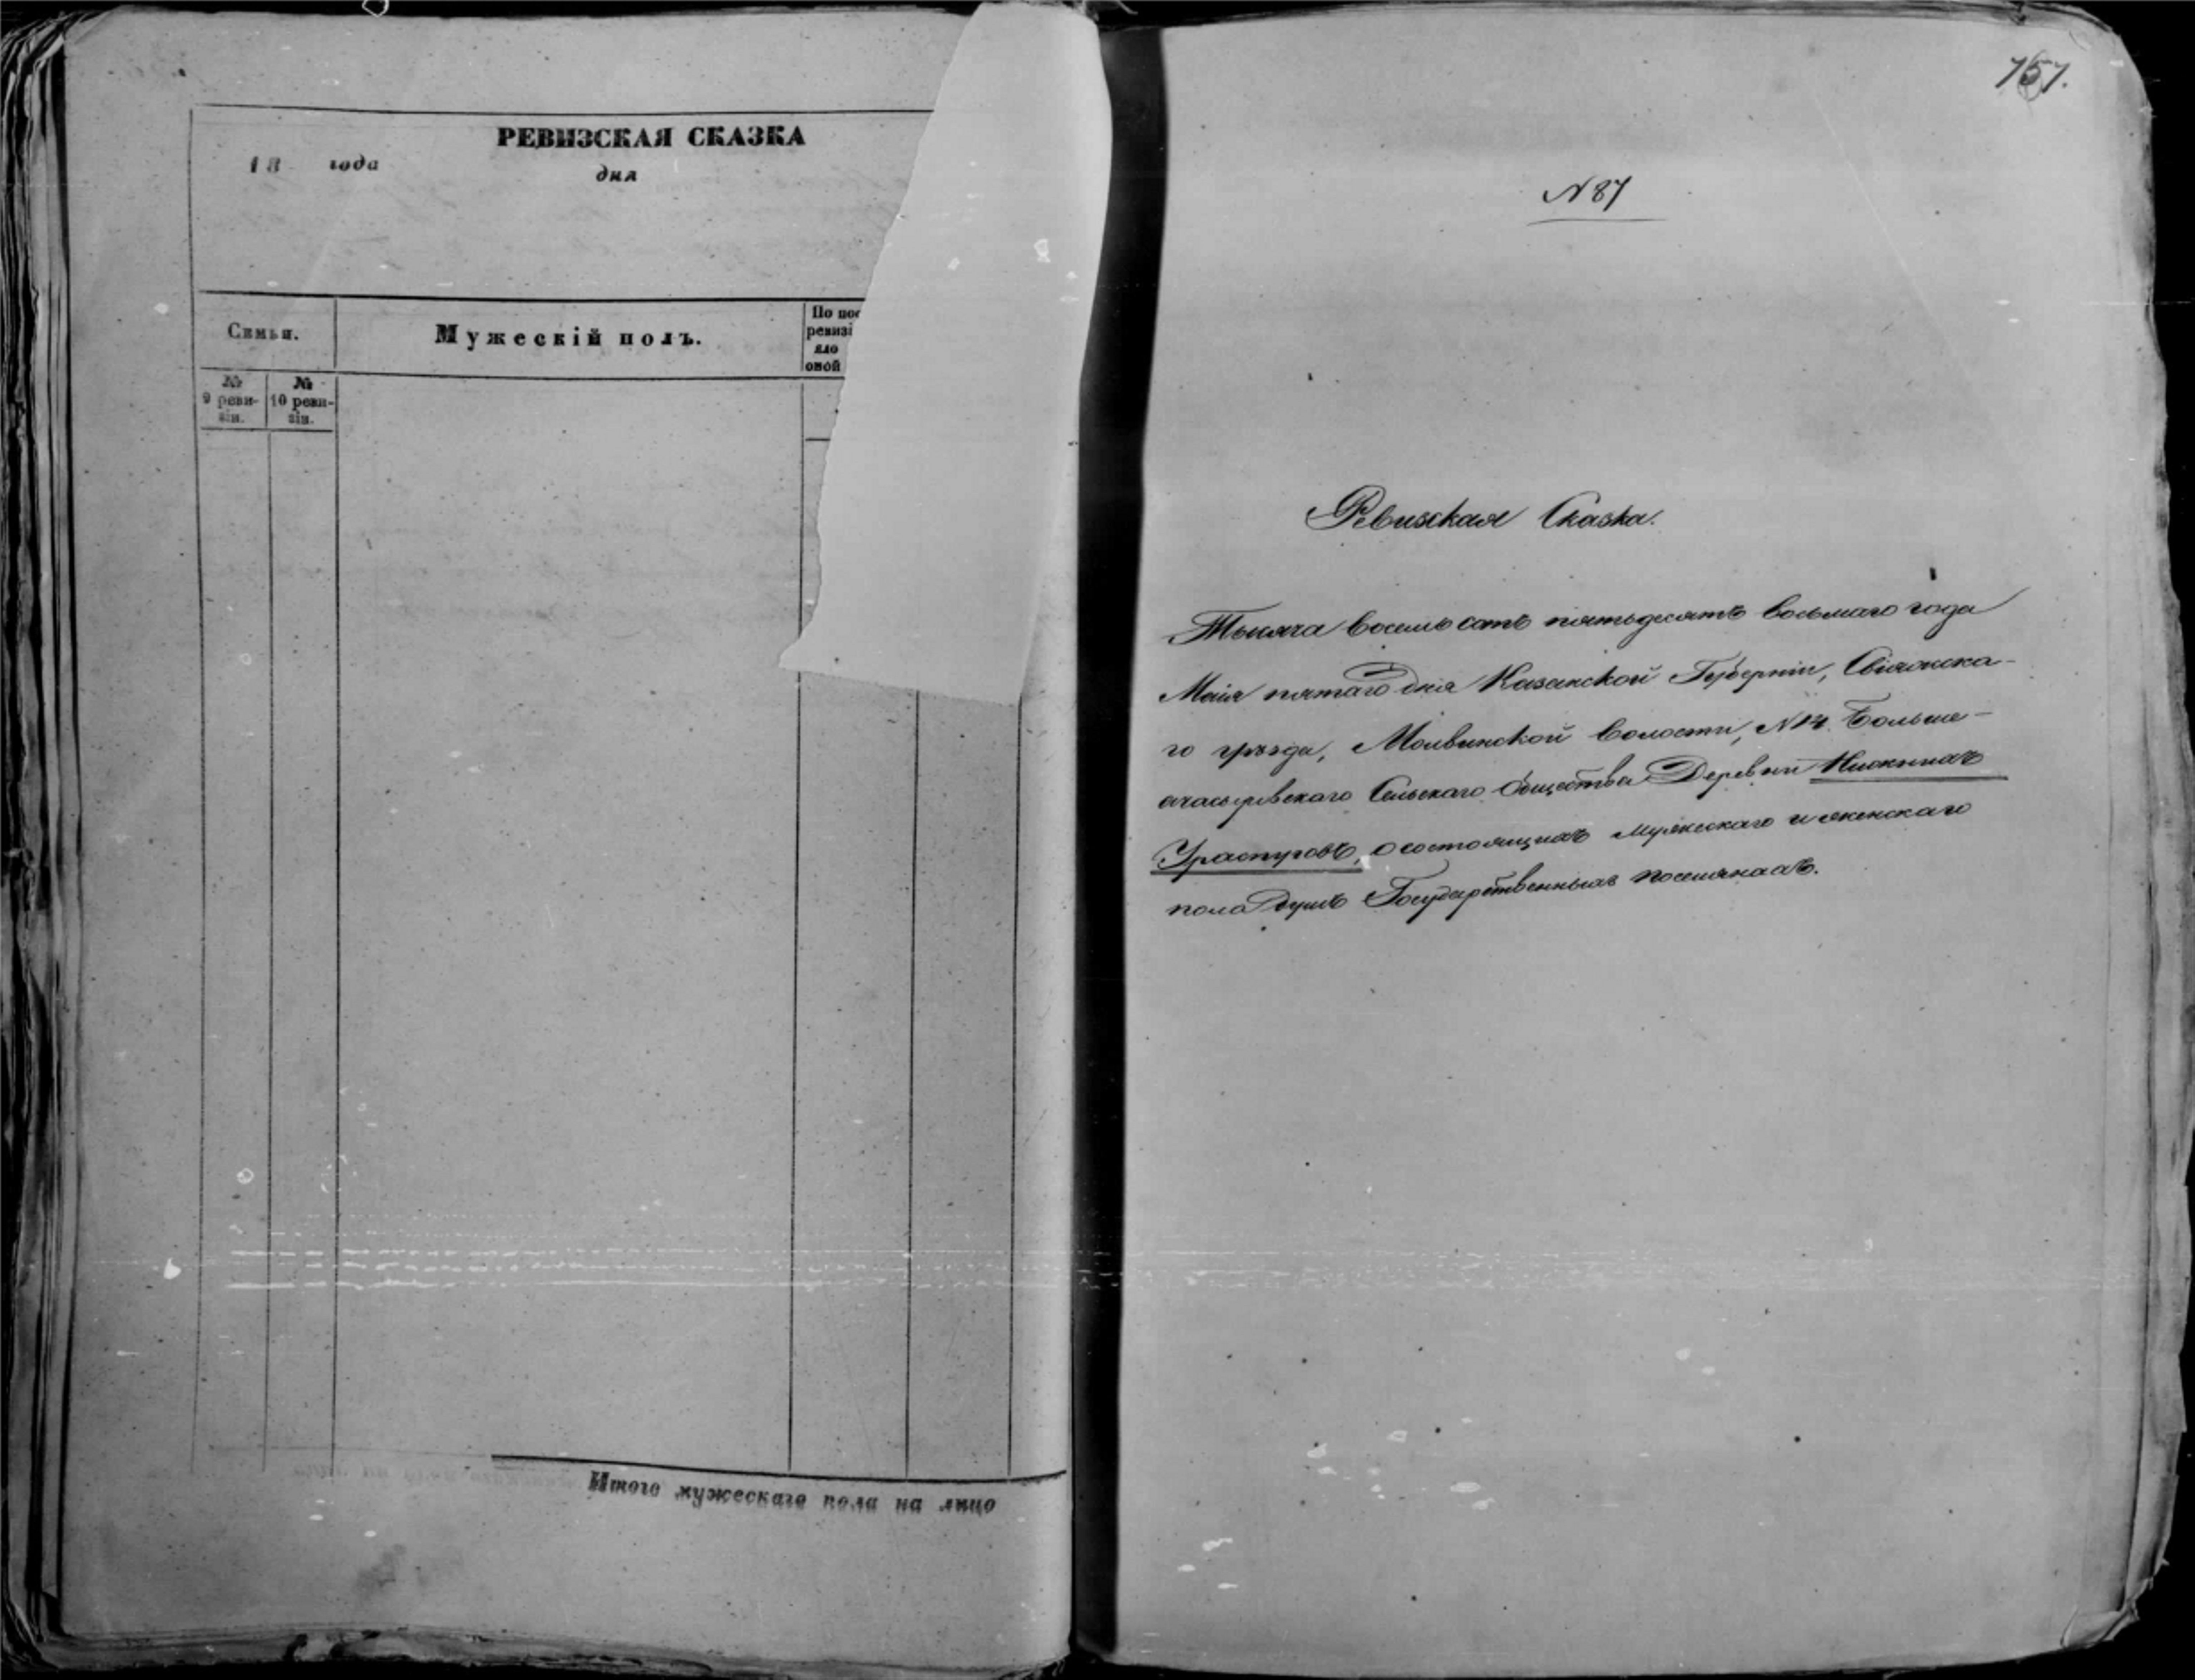 РЕВИЗСКАЯ СКАЗКА
18 года
дня
Семья.
Мужескій полъ.
По пос
ревизі
яло
оной
№ 9 реви-зіи.
№ 10 реви-зіи.
Итого мужескаго пола на лицо
757.
N 87
Ревизская Сказка.
Тысяча восемьсотъ пятьдесятъ восьмаго года
Маія пятаго дня Казанской Губерніи, Свіяжска-
го уѣзда, Молвинской волости, N 14. Больше-
ачасырскаго Сельскаго Общества Деревни Нижнихъ
Ураспуговъ, о состоящихъ мужескаго и женскаго
пола душъ Государственныхъ поселянахъ.